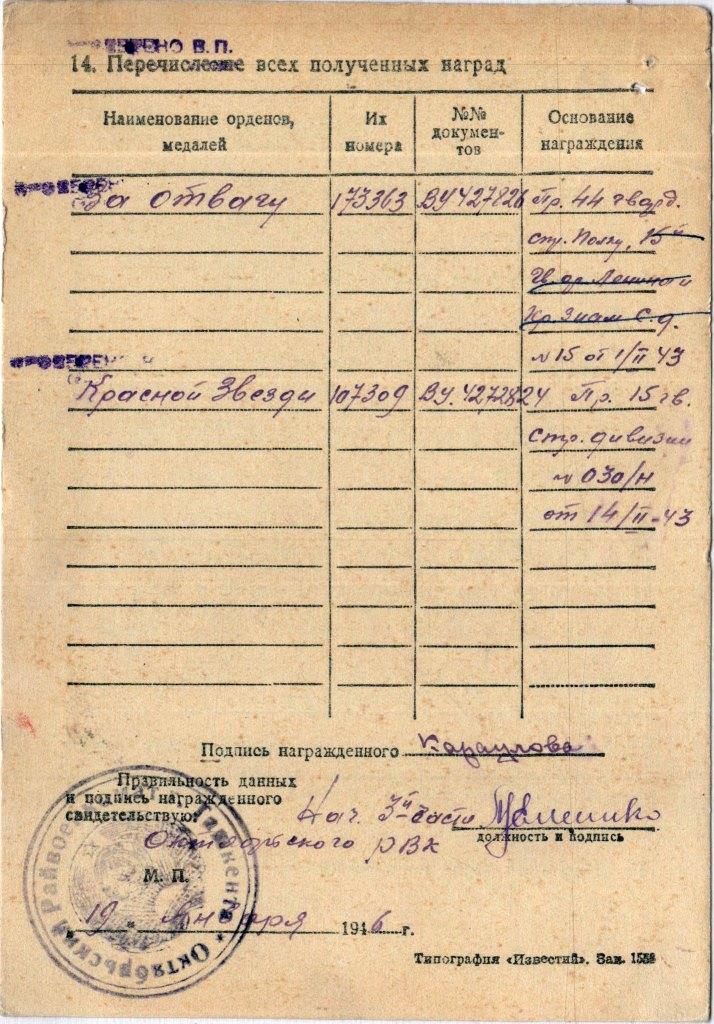 ПРОВЕРЕНО В. П.
14. Перечисление всех полученных наград
Наименование орденов, медалей
Их номера
№№ документов
Основание награждения
ПРОВЕРЕНО
За отвагу 173363 ВУ427826 Пр. 44 гвард.
стр. Полку, 15й
Гв. ор. Ленина и
Кр. Знам с.д.
№15 от 1/II 43
ПРОВЕРЕНО
Красной Звезды 107309 ВУ.4272824 Пр. 15 гв.
стр. дивизии
№ 030/н
от 14/II-43
Подпись награжденного Караулова
Правильность данных
и подпись награжденного
свидетельствую: Нач. 3й части
должность и подпись
Октябрьского РВК
М. П.
"19" Января 1946 г.
Октябрьский Райвоенкомат Ташкента
Типография «Известий». Зак. 155